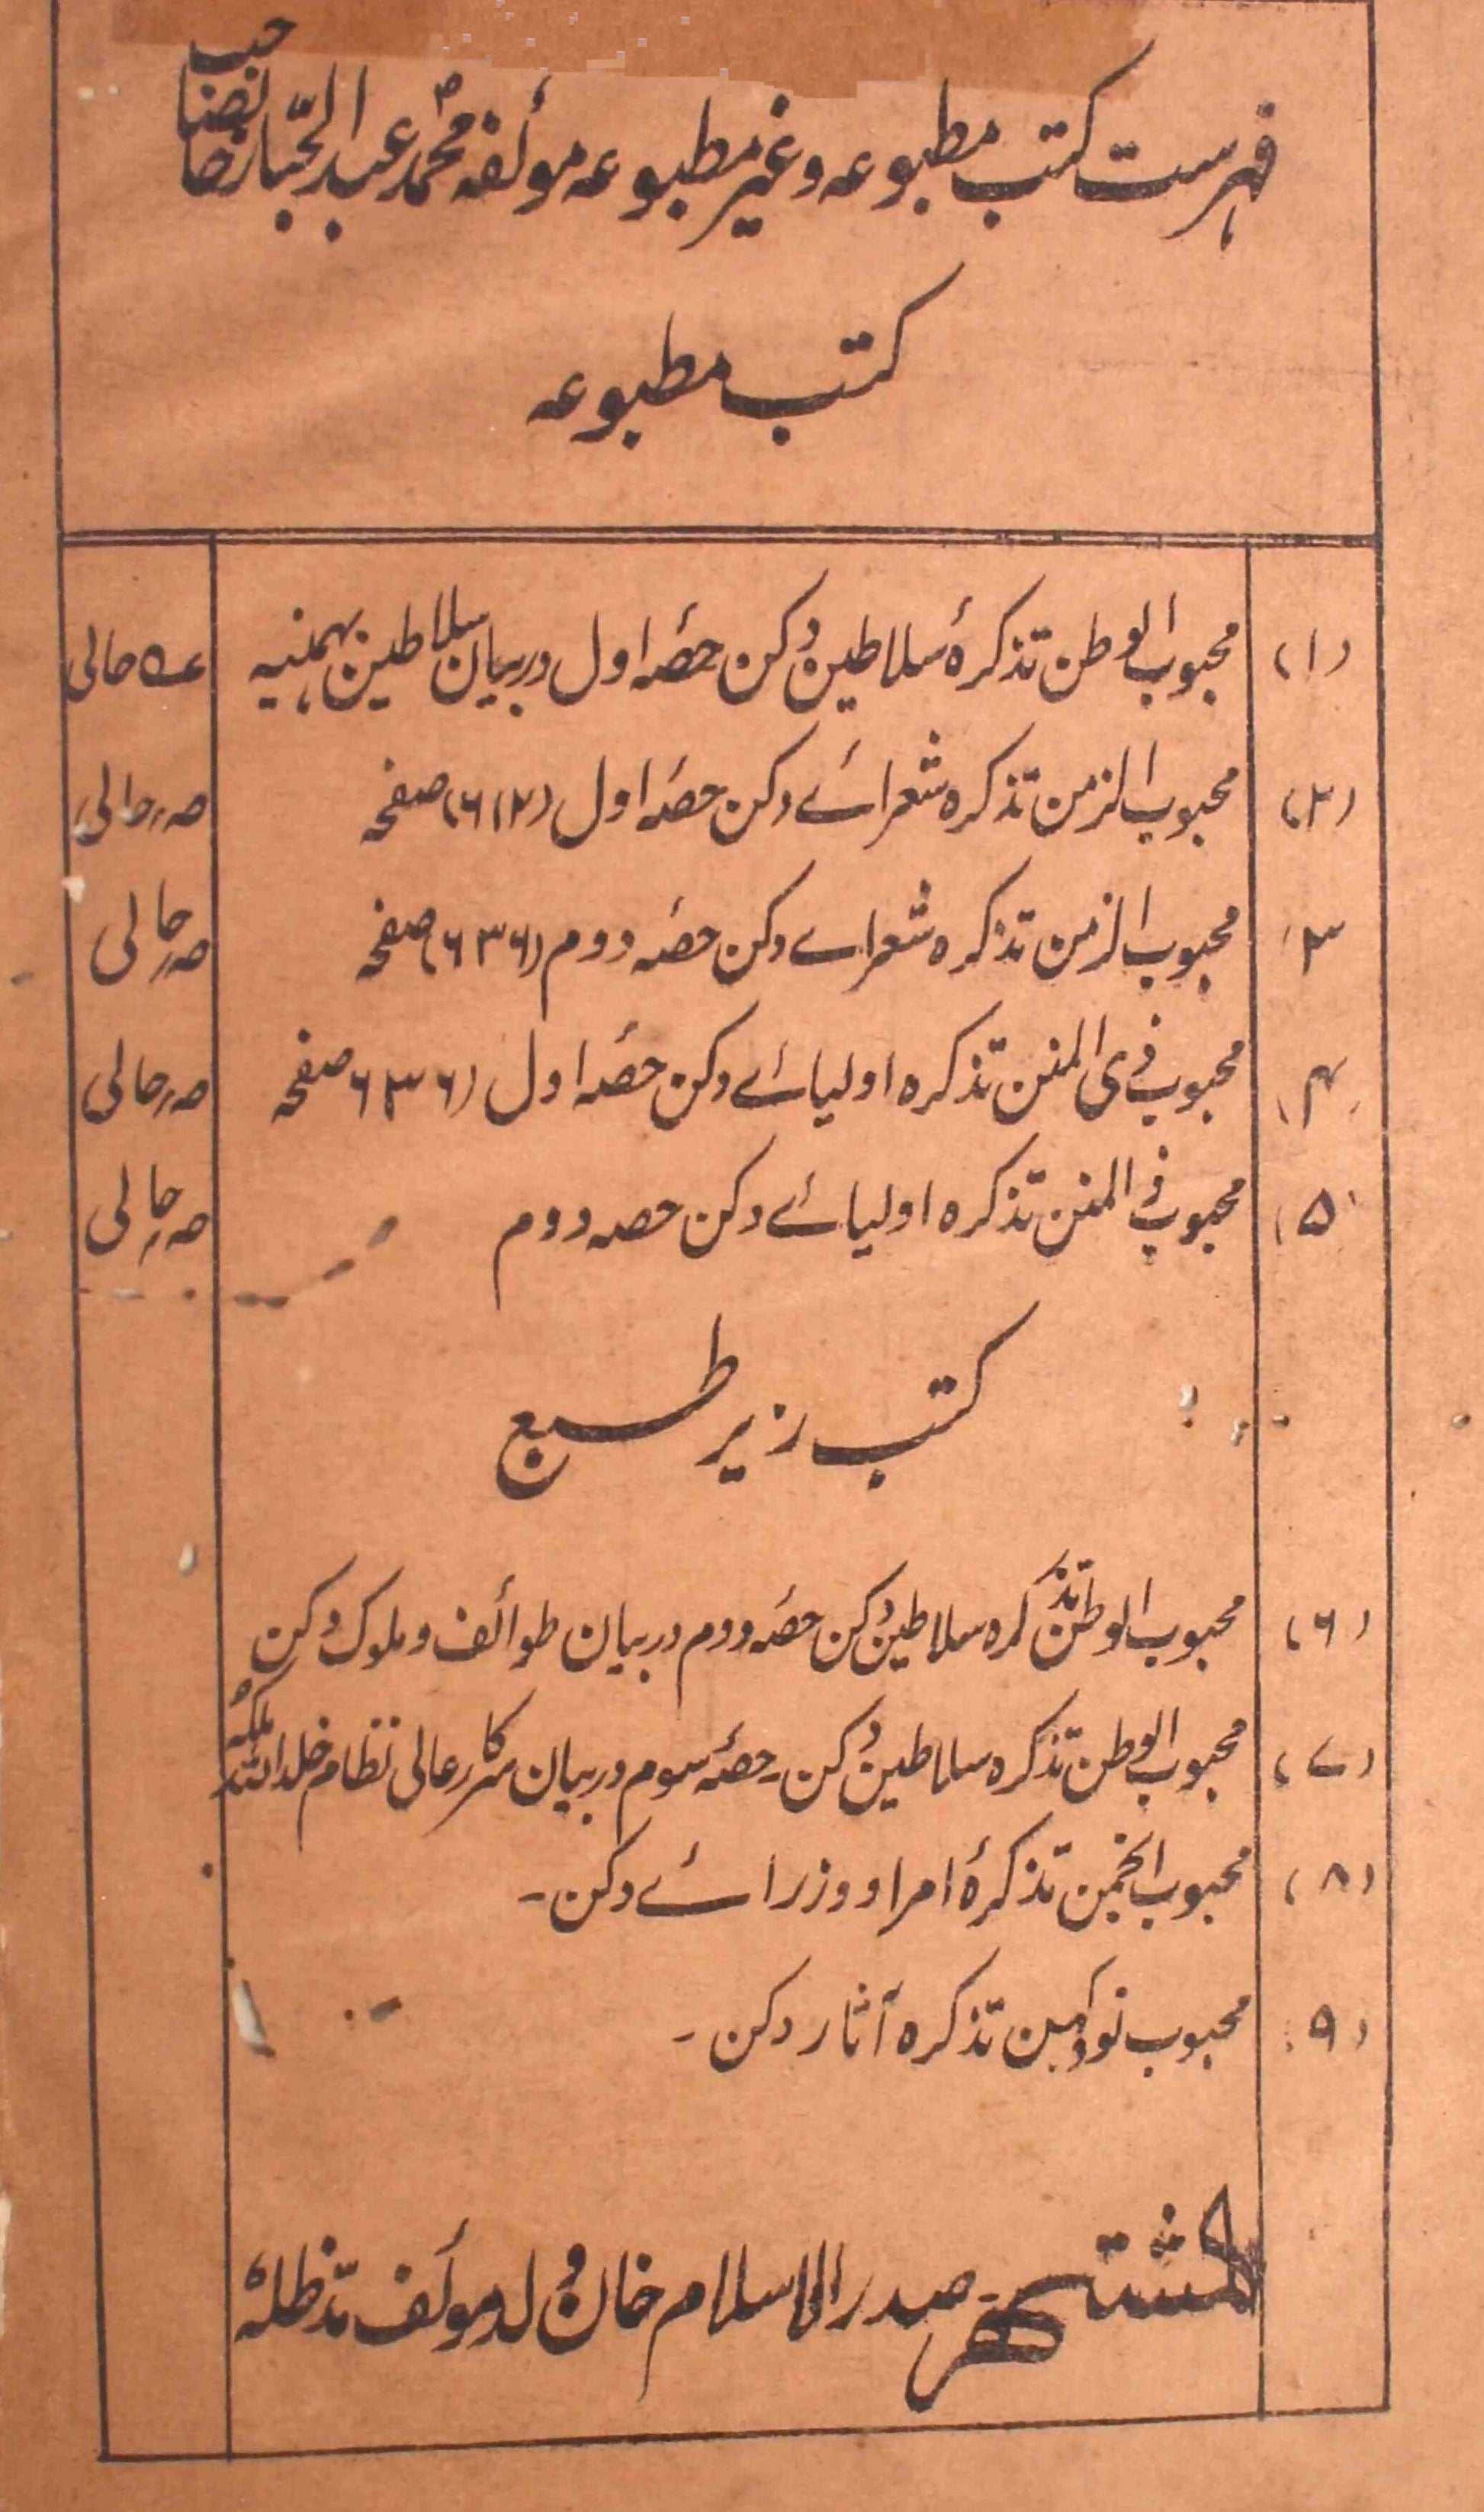 فہرست کتب مطبوعہ وغیر مطبوعہ مؤلفہ محمد عبدالجبار خانصاحب
کتب مطبوعہ
(۱) محبوب الوطن تذکرۂ سلاطین دکن حصّہ اول در بیان سلاطین بہمنیہ حالی
(۲) محبوب الزمن تذکرہ شعرائے دکن حصّہ اول (۶۱۲) صفحہ صہ حالی
۳ محبوب الزمن تذکرہ شعرائے دکن حصّہ دوم (۶۳۶) صفحہ صہ حالی
۴ محبوب ذی المنن تذکرہ اولیائے دکن حصّہ اول (۶۳۶ صفحہ صہ حالی
(۵) محبوب ذی المنن تذکرہ اولیائے دکن حصہ دوم صہ حالی
کتب زیر طبع
(۶) محبوب الوطن تذکرہ سلاطین دکن حصّہ دوم در بیان طوائف و ملوک دکن
(۷) محبوب الوطن تذکرہ سلاطین دکن۔ حصّہ سوم در بیان سرکار عالی نظام خلد اللہ ملکہ
(۸) محبوب انجمن تذکرۂ امرا و وزرائے دکن۔
(۹) محبوب تذکرہ آثار دکن۔
المشتہر صدر الاسلام خان ولد مولف مدّظلہ